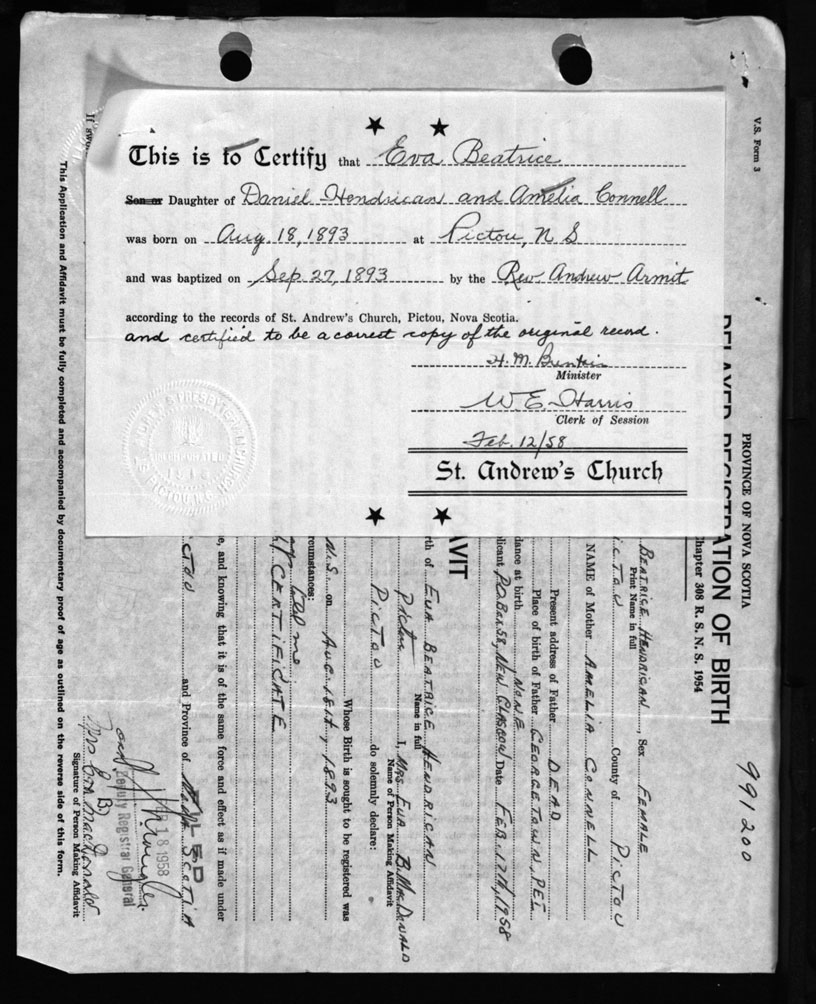 This is to Certify that Eva Beatrice
Son or Daughter of Daniel Hendrican and Amelia Connell
was born on Aug. 18, 1893 at Pictou, N S
and was baptized on Sep. 27, 1893 by the Rev. Andrew Armit
according to the records of St. Andrew's Church, Pictou, Nova Scotia.
and certified to be a correct copy of the original record.
Minister
W. E. Harris
Clerk of Session
Feb. 12/58
St. Andrew's Church
V.S. Form 3
PROVINCE OF NOVA SCOTIA
DELAYED REGISTRATION OF BIRTH
Chapter 308 R. S. N. S. 1954
991200
BEATRICE HENDRICAN, Sex FEMALE
Print Name in full
ICTOU County of PICTOU
NAME of Mother AMELIA CONNELL
Present address of Father DEAD
Place of birth of Father GEORGETOWN, PEI
dance at birth NONE
licant P.O. Box 58, NEW GLASGOW Date FEB. 17TH, 1958
AVIT
I, MRS EVA B. MACDONALD
Name of Person Making Affidavit
rth of EVA BEATRICE HENDRICAN
Name in full
Pictou
PICTOU do solemnly declare:
Whose Birth is sought to be registered was
N.S. on AUG. 18TH, 1893
rcumstances:
CERTIFICATE
e, and knowing that it is of the same force and effect as if made under
ICTOU and Province of NOVA SCOTIA
18 1958
Deputy Registrar General
Mrs. Eva (B) MacDonald
Signature of Person Making Affidavit
If swo
This Application and Affidavit must be fully completed and accompanied by documentary proof of age as outlined on the reverse side of this form.